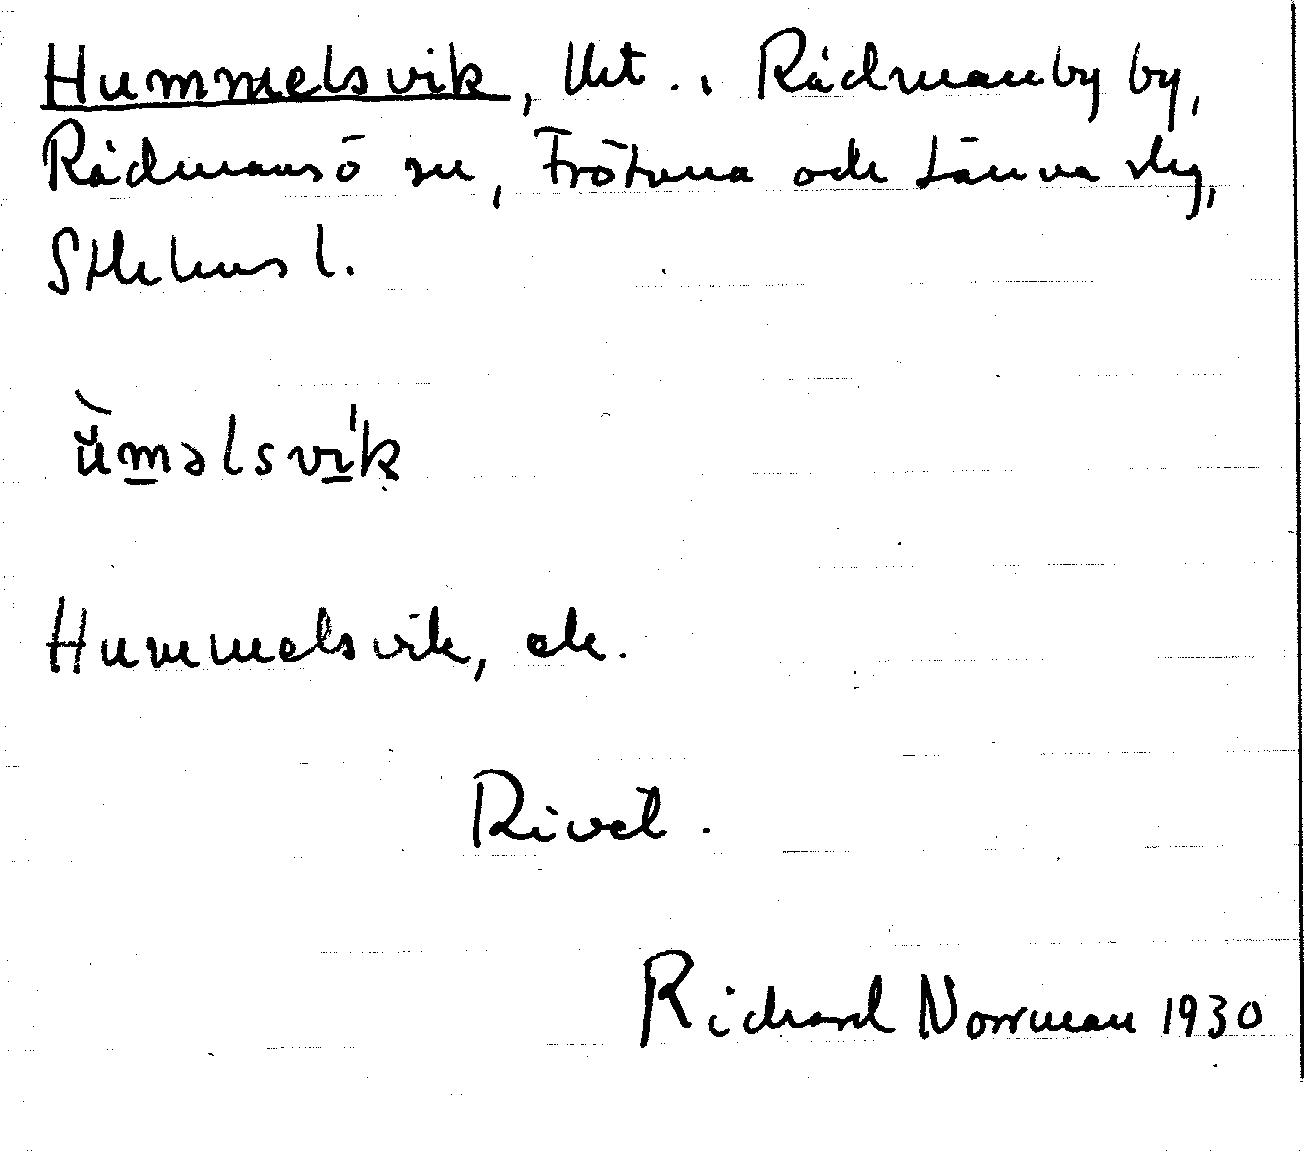 Hummelsvik, tlht. i Rådmanby by,
Rådmansö sn, Frötuna och Länna slg,
Sthlms l.
ùməlsvik
Hummelsvik, ek.
Rivet.
Richard Norrman 1930